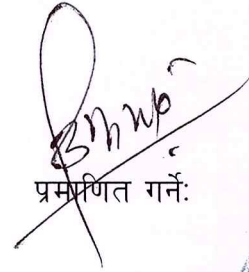 प्रमाणित गर्ने: